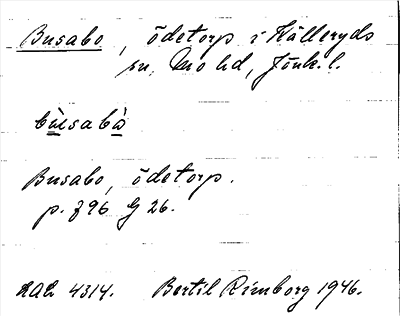 Busabo, ödetorp i Källeryds
sn, Mo hd, Jönk. l.
bùsabà
Busabo, ödetorp.
p. 396 G 26.
4314. Bertil Rimborg 1946.